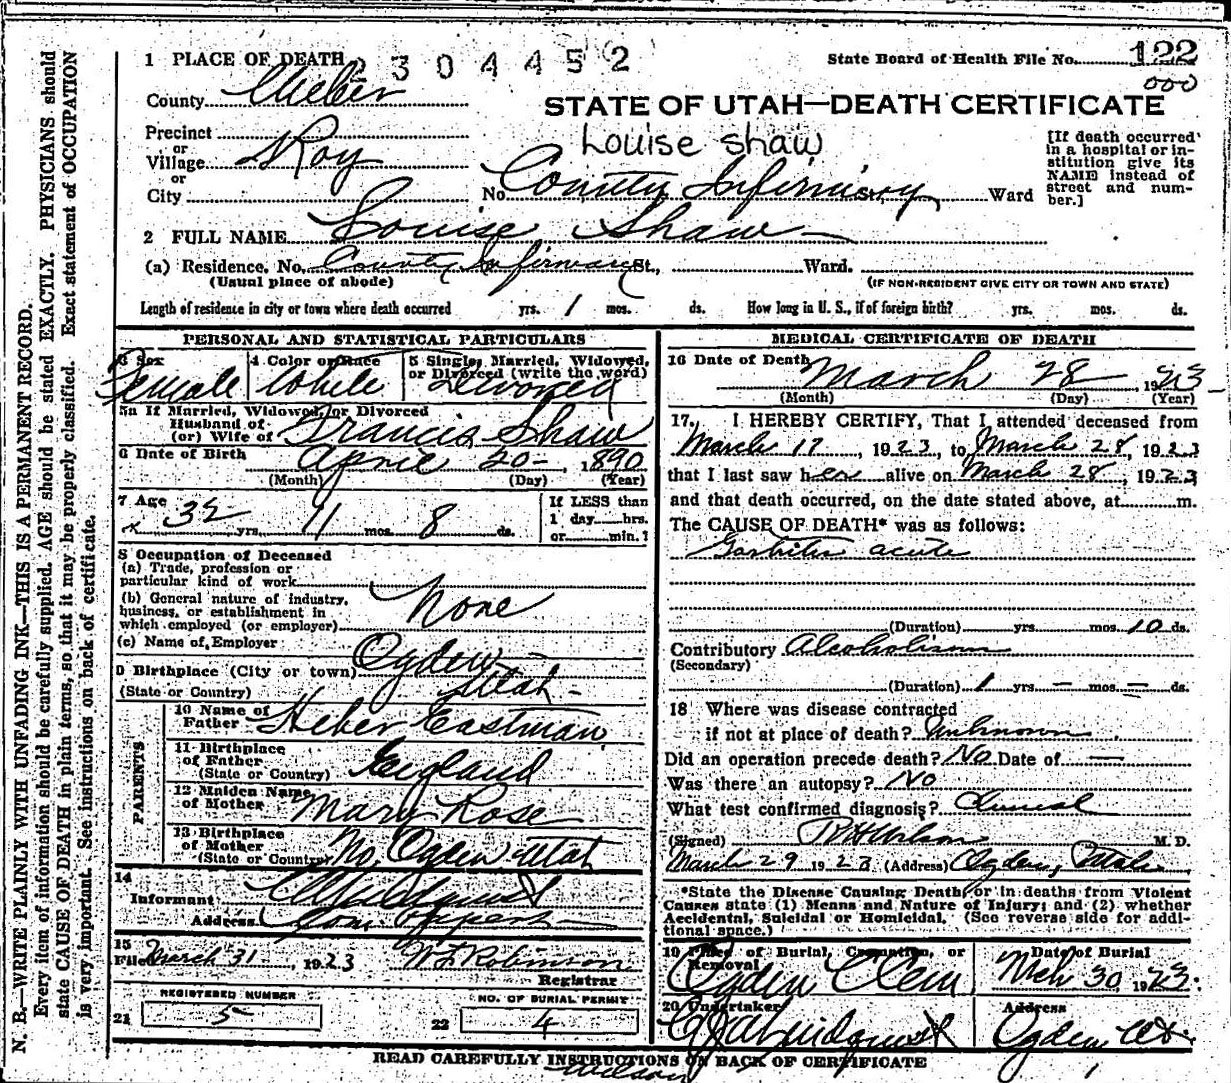 1 PLACE OF DEATH 2 3 0 4 4 5 2 State Board of Health File No. 122
000
County Weber
STATE OF UTAH—DEATH CERTIFICATE
Louise Shaw
Precinct
or
Village Roy
or
City No. County Infirmiary Ward
[If death occurred
in a hospital or in-
stitution give its
NAME instead of
street and num-
ber.]
2 FULL NAME Louise Shaw
(a) Residence. No. County Infirmary St., Ward.
(Usual place of abode) (IF NON-RESIDENT GIVE CITY OR TOWN AND STATE)
Length of residence in city or town where death occurred yrs. 1 mos. ds. How long in U. S., if of foreign birth? yrs. mos. ds.
PERSONAL AND STATISTICAL PARTICULARS
3 Sex 4 Color or Race 5 Single, Married, Widowed,
or Divorced (write the word)
Female White Divorced
5a If Married, Widowed, or Divorced
Husband of
(or) Wife of Francis Shaw
6 Date of Birth April 20 - 1890
(Month) (Day) (Year)
7 Age 32 yrs. 11 mos. 8 ds.
If LESS than
1 day hrs.
or min.?
8 Occupation of Deceased
(a) Trade, profession or
particular kind of work
(b) General nature of industry,
business, or establishment in
which employed (or employer) None
(c) Name of Employer
9 Birthplace (City or town) Ogden -
(State or Country) Utah -
PARENTS
10 Name of
Father Heber Eastman
11 Birthplace
of Father
(State or Country) England
12 Maiden Name
of Mother Mary Rose
13 Birthplace
of Mother
(State or Country) No. Ogden Utah
14
Informant
Address
15
Filed March 31, 1923 W F Robinson
Registrar
REGISTERED NUMBER
21 5
NO. OF BURIAL PERMIT
22 4
MEDICAL CERTIFICATE OF DEATH
16 Date of Death March 28, 1923
(Month) (Day) (Year)
17. I HEREBY CERTIFY, That I attended deceased from
March 17, 1923, to March 28, 1923
that I last saw her alive on March 28, 1923
and that death occurred, on the date stated above, at m.
The CAUSE OF DEATH* was as follows:
Gastritis acute
(Duration) yrs. mos. 10 ds.
Contributory Alcoholism
(Secondary)
(Duration) 1 yrs. — mos. — ds.
18 Where was disease contracted
if not at place of death? Unknown
Did an operation precede death? No Date of —
Was there an autopsy? No
What test confirmed diagnosis? Clinical
(Signed) M. D.
March 29 1923 (Address) Ogden, Utah
*State the Disease Causing Death, or in deaths from Violent
Causes state (1) Means and Nature of Injury; and (2) whether
Accidental, Suicidal or Homicidal. (See reverse side for addi-
tional space.)
19 Place of Burial, Cremation, or
Removal Date of Burial
Ogden Cem Mch 30, 1923.
20 Undertaker Address
Ogden Ut.
READ CAREFULLY INSTRUCTIONS ON BACK OF CERTIFICATE
Wilson
N. B.—WRITE PLAINLY WITH UNFADING INK—THIS IS A PERMANENT RECORD.
Every item of information should be carefully supplied. AGE should be stated EXACTLY. PHYSICIANS should
state CAUSE OF DEATH in plain terms, so that it may be properly classified. Exact statement of OCCUPATION
is very important. See instructions on back of certificate.